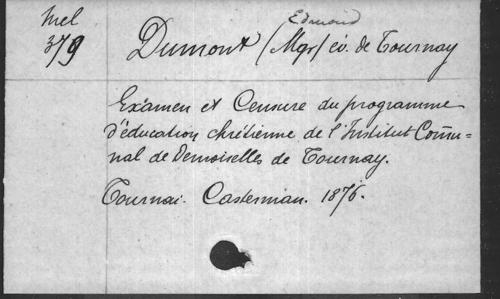 Mel
379
Edmond
Dumont (Mgr) év. de Tournay
Examen et Censure du programme
d'éducation chrétienne de l'Institut Commu-
nal de Demoiselles de Tournay.
Tournai. Casterman. 1876.